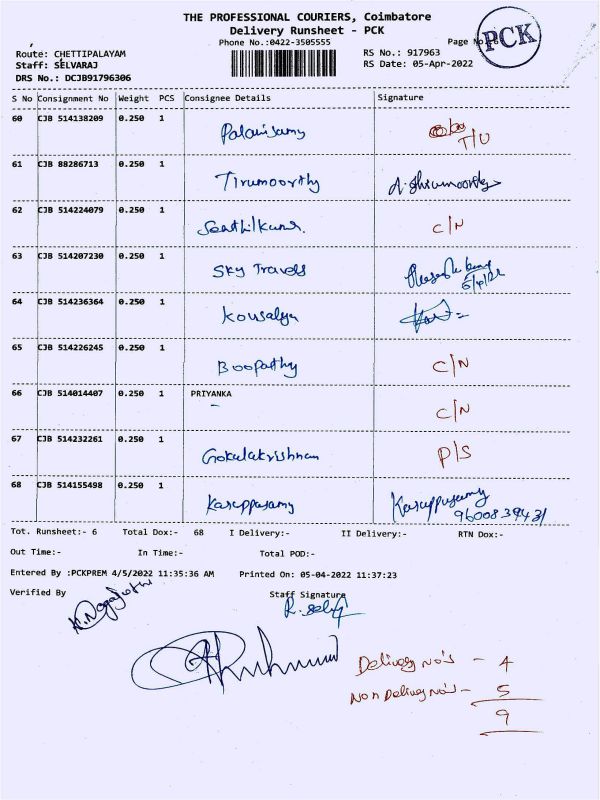 THE PROFESSIONAL COURIERS, Coimbatore
Delivery Runsheet - PCK
Phone No.:0422-3505555
Page No.:6
PCK
Route: CHETTIPALAYAM
RS No.: 917963
Staff: SELVARAJ
RS Date: 05-Apr-2022
DRS No.: DCJB91796306
S No Consignment No Weight PCS Consignee Details Signature
60 CJB 514138209 0.250 1
Palanisamy T/U
61 CJB 88286713 0.250 1
Tirumoorthy A. Thirumoorthy
62 CJB 514224079 0.250 1
Senthilkumar C/N
63 CJB 514207230 0.250 1
Sky Travels
5/4/22
64 CJB 514236364 0.250 1
Kousalya
65 CJB 514226245 0.250 1
Boopathy C/N
66 CJB 514014407 0.250 1 PRIYANKA
C/N
67 CJB 514232261 0.250 1
Gokulakrishnan P/S
68 CJB 514155498 0.250 1
Karuppusamy Karuppusamy
9600839431
Tot. Runsheet:- 6 Total Dox:- 68 I Delivery:- II Delivery:- RTN Dox:-
Out Time:- In Time:- Total POD:-
Entered By :PCKPREM 4/5/2022 11:35:36 AM Printed On: 05-04-2022 11:37:23
Verified By Staff Signature
Delivery No's - 4
Non Delivery No's - 5
9